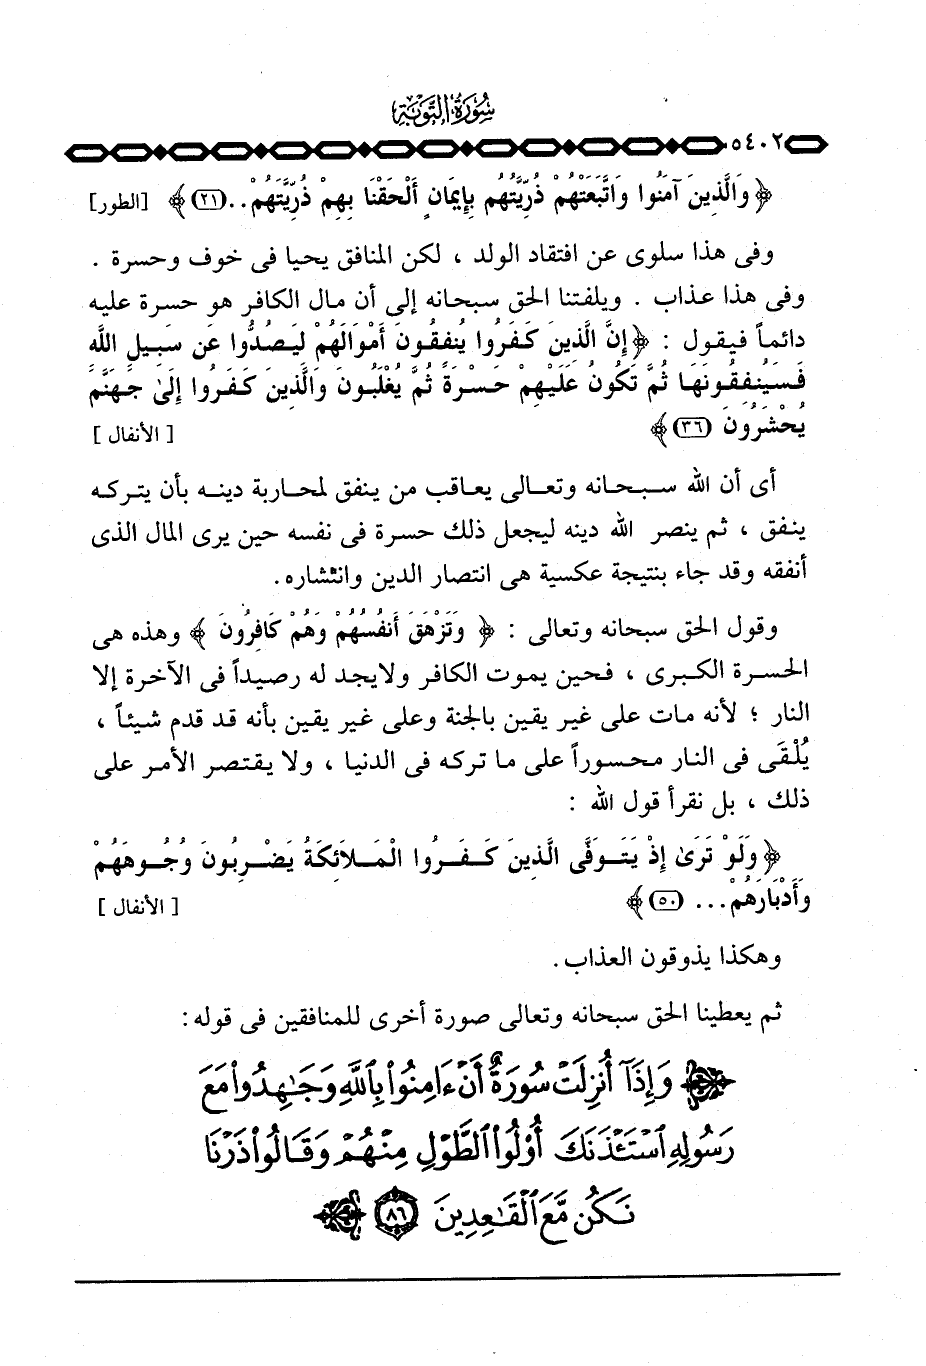 سُورَةُ التَّوْبَةِ
٥٤٠٢
﴿ وَالَّذِينَ آمَنُوا وَاتَّبَعَتْهُمْ ذُرِّيَّتُهُم بِإِيمَانٍ أَلْحَقْنَا بِهِمْ ذُرِّيَّتَهُمْ .. (٢١) ﴾ [الطور]
وفى هذا سلوى عن افتقاد الولد ، لكن المنافق يحيا فى خوف وحسرة .
وفى هذا عذاب . ويلفتنا الحق سبحانه إلى أن مال الكافر هو حسرة عليه
دائماً فيقول : ﴿ إِنَّ الَّذِينَ كَفَرُوا يُنفِقُونَ أَمْوَالَهُمْ لِيَصُدُّوا عَن سَبِيلِ اللَّهِ
فَسَيُنفِقُونَهَا ثُمَّ تَكُونُ عَلَيْهِمْ حَسْرَةً ثُمَّ يُغْلَبُونَ وَالَّذِينَ كَفَرُوا إِلَىٰ جَهَنَّمَ
يُحْشَرُونَ (٣٦) ﴾ [ الأنفال ]
أى أن الله سبحانه وتعالى يعاقب من ينفق لمحاربة دينه بأن يتركه
ينفق ، ثم ينصر الله دينه ليجعل ذلك حسرة فى نفسه حين يرى المال الذى
أنفقه وقد جاء بنتيجة عكسية هى انتصار الدين وانتشاره .
وقول الحق سبحانه وتعالى : ﴿ وَتَزْهَقَ أَنفُسُهُمْ وَهُمْ كَافِرُونَ ﴾ وهذه هى
الحسرة الكبرى ، فحين يموت الكافر ولايجد له رصيداً فى الآخرة إلا
النار ؛ لأنه مات على غير يقين بالجنة وعلى غير يقين بأنه قد قدم شيئاً ،
يُلْقَى فى النار محسوراً على ما تركه فى الدنيا ، ولا يقتصر الأمر على
ذلك ، بل نقرأ قول الله :
﴿ وَلَوْ تَرَىٰ إِذْ يَتَوَفَّى الَّذِينَ كَفَرُوا الْمَلَائِكَةُ يَضْرِبُونَ وُجُوهَهُمْ
وَأَدْبَارَهُمْ ... (٥٠) ﴾ [ الأنفال ]
وهكذا يذوقون العذاب .
ثم يعطينا الحق سبحانه وتعالى صورة أخرى للمنافقين فى قوله :
﴿ وَإِذَآ أُنزِلَتْ سُورَةٌ أَنْ ءَامِنُوا۟ بِٱللَّهِ وَجَٰهِدُوا۟ مَعَ
رَسُولِهِ ٱسْتَـْٔذَنَكَ أُو۟لُوا۟ ٱلطَّوْلِ مِنْهُمْ وَقَالُوا۟ ذَرْنَا
نَكُن مَّعَ ٱلْقَٰعِدِينَ (٨٦) ﴾